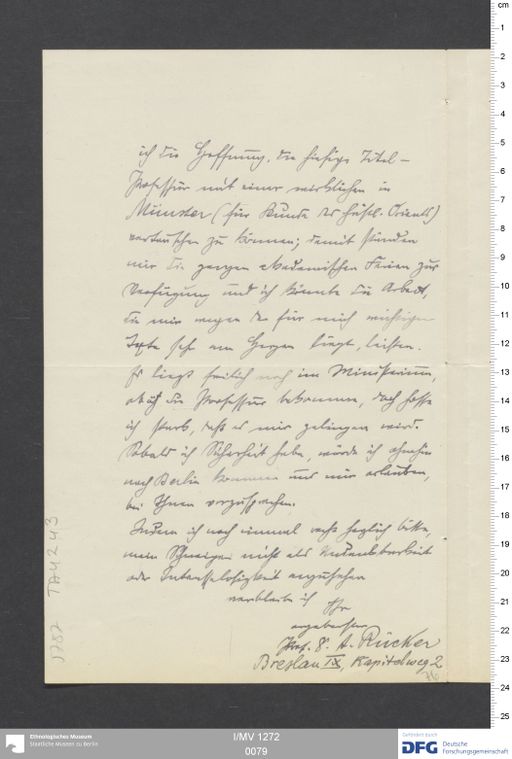 ich die Hoffnung, die hiesige Titel-
Professur mit einer wirklichen in
Münster (für Kunde des christl. Orients)
vertauschen zu können; damit ständen
mir die ganzen akademischen Ferien zur
Verfügung und ich könnte die Arbeit,
die mir wegen der für mich wichtigen
Texte sehr am Herzen liegt, leisten.
Es liegt freilich noch im Ministerium,
ob ich die Professur bekomme, doch hoffe
ich stark, daß es mir gelingen wird.
Sobald ich Sicherheit habe, würde ich ohnehin
nach Berlin kommen und mir erlauben,
bei Ihnen vorzusprechen.
Indem ich noch einmal recht herzlich bitte,
mein Schweigen nicht als Undankbarkeit
oder Interesselosigkeit anzusehen
verbleibe ich Ihr
ergebenster
Prof. A. Rücker
Breslau IX, Kapitelweg 2
1787 TA 4243
Ethnologisches Museum
Staatliche Museen zu Berlin
I/MV 1272
0079
Gefördert durch
DFG Deutsche
Forschungsgemeinschaft
cm
1
2
3
4
5
6
7
8
9
10
11
12
13
14
15
16
17
18
19
20
21
22
23
24
25